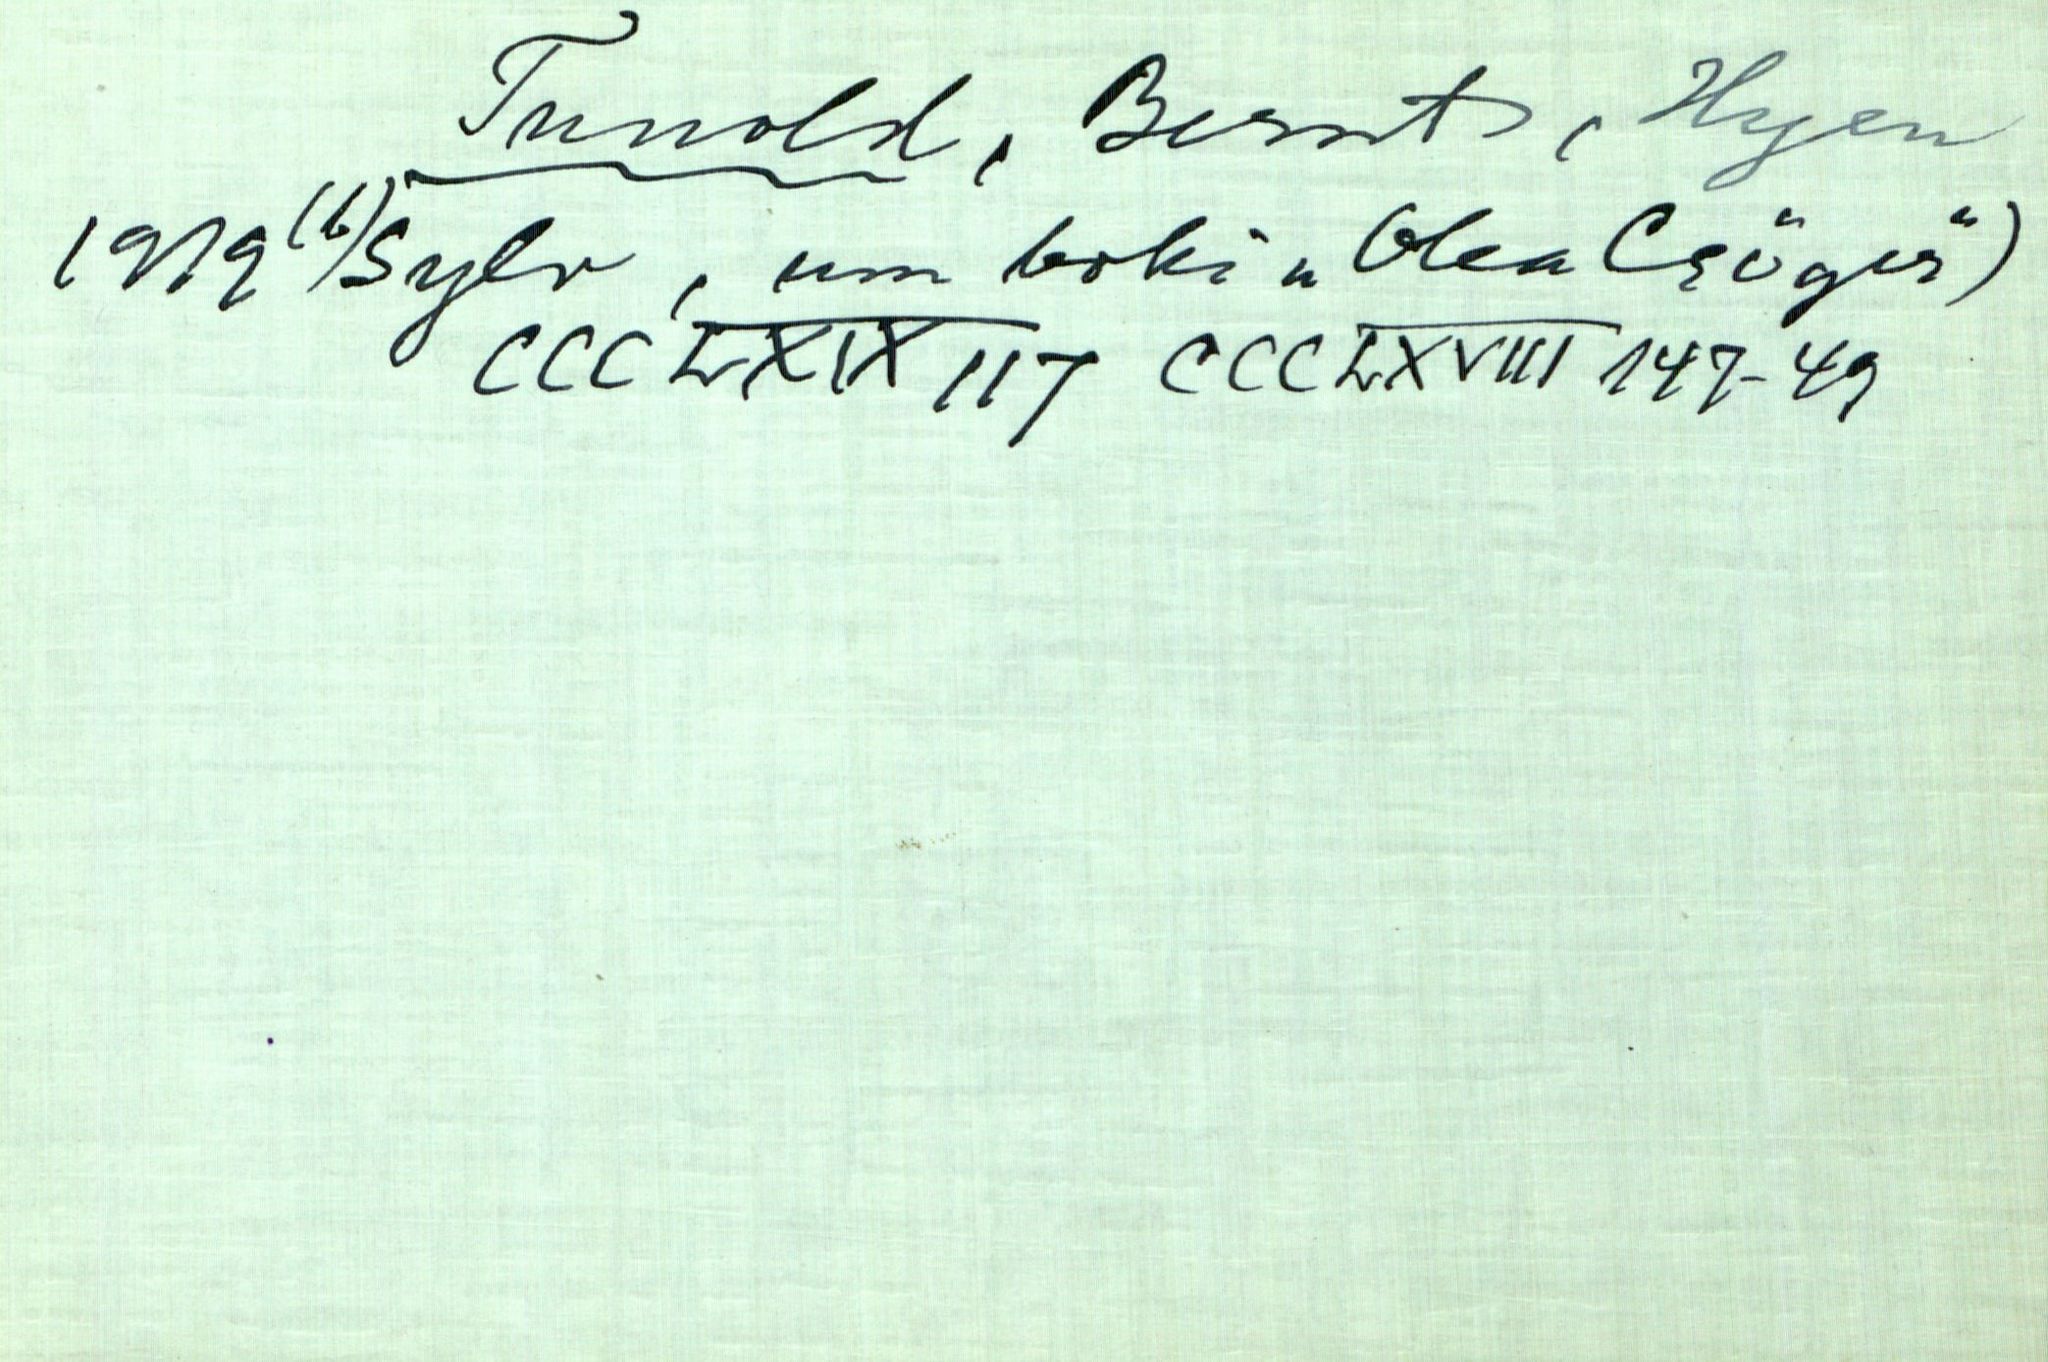 Tunold, Bernt, Hyen
1979 (b) Sylv, um boki "Olea Crøger")
CCCLXIX 117 CCCLXVIII 147-49